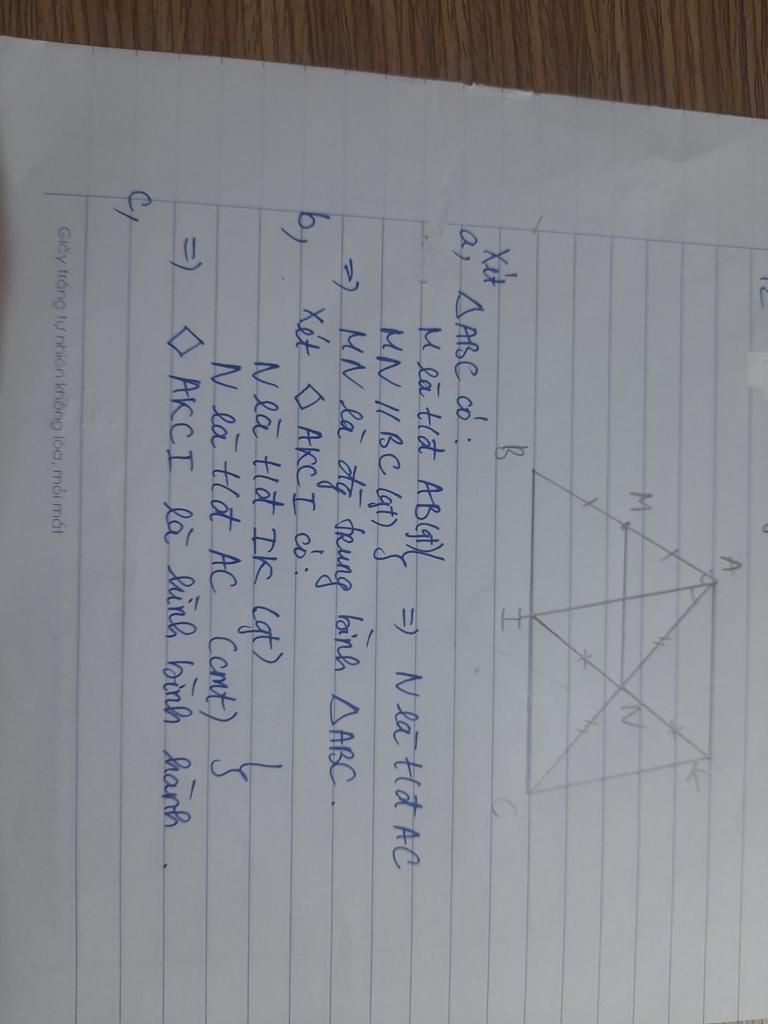 A
M
K
N
B
I
C
Xét
a, △ABC có:
M là t/đ AB(gt)
MN // BC (gt) } => N là t/đ AC
=) MN là đg trung bình △ABC.
b, Xét ◇ AKCI có:
N là t/đ IK (gt)
N là t/đ AC (cmt) }
=) ◇ AKCI là hình bình hành.
c,
Giấy trắng tự nhiên không lóa, mỏi mắt